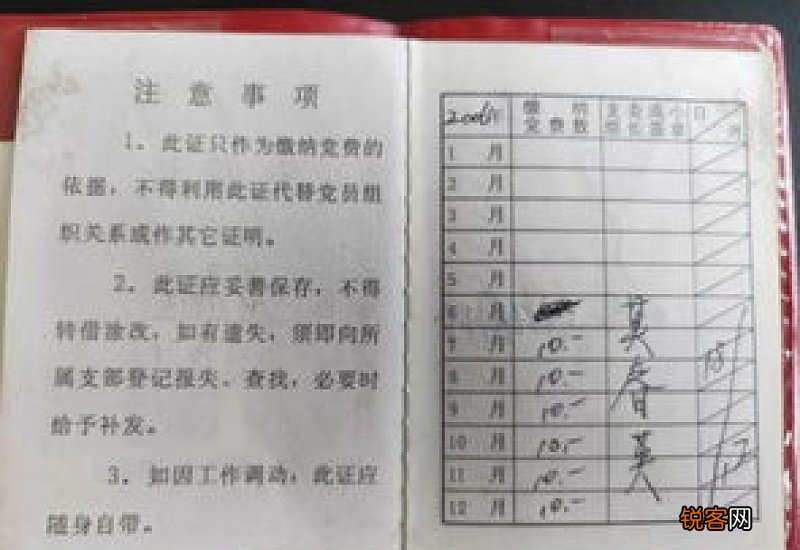 注意事项
1。此证只作为缴纳党费的
依据,不得利用此证代替党员组
织关系或作其它证明。
2。此证应妥善保存,不得
转借涂改,如有遗失,须即向所
属支部登记报失、查找,必要时
给予补发。
3、如因工作调动,此证应
随身自带。
缴纳 支委或小 日
党费数 组长盖章 月
1 月
2 月
3 月
4 月
5 月
6 月
7 月 10.-
8 月 10.-
9 月 10.-
10 月 10.-
11 月 10.-
12 月 10.-
锐客网